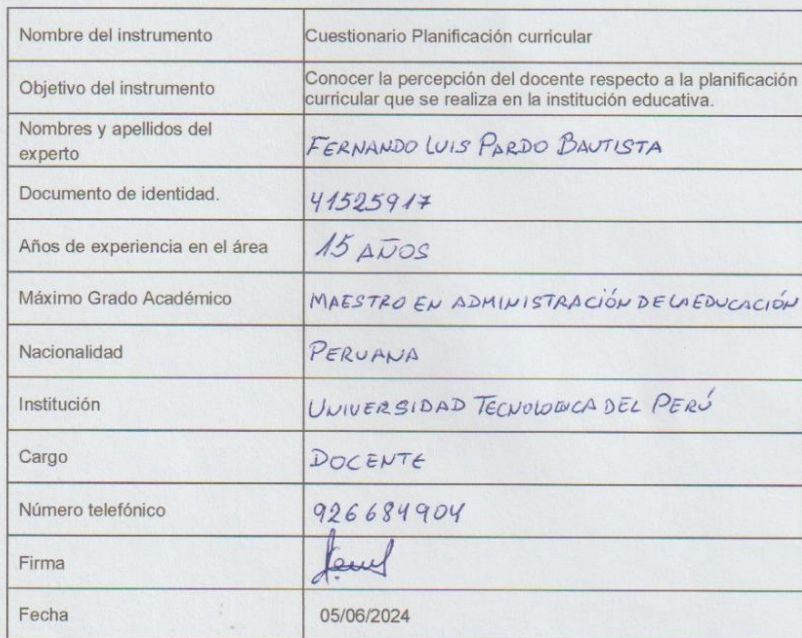 Nombre del instrumento
Cuestionario Planificación curricular
Objetivo del instrumento
Conocer la percepción del docente respecto a la planificación
curricular que se realiza en la institución educativa.
Nombres y apellidos del
experto
FERNANDO LUIS PARDO BAUTISTA
Documento de identidad.
41525917
Años de experiencia en el área
15 AÑOS
Máximo Grado Académico
MAESTRO EN ADMINISTRACIÓN DE LA EDUCACIÓN
Nacionalidad
PERUANA
Institución
UNIVERSIDAD TECNOLOGICA DEL PERÚ
Cargo
DOCENTE
Número telefónico
926684904
Firma
Fecha
05/06/2024